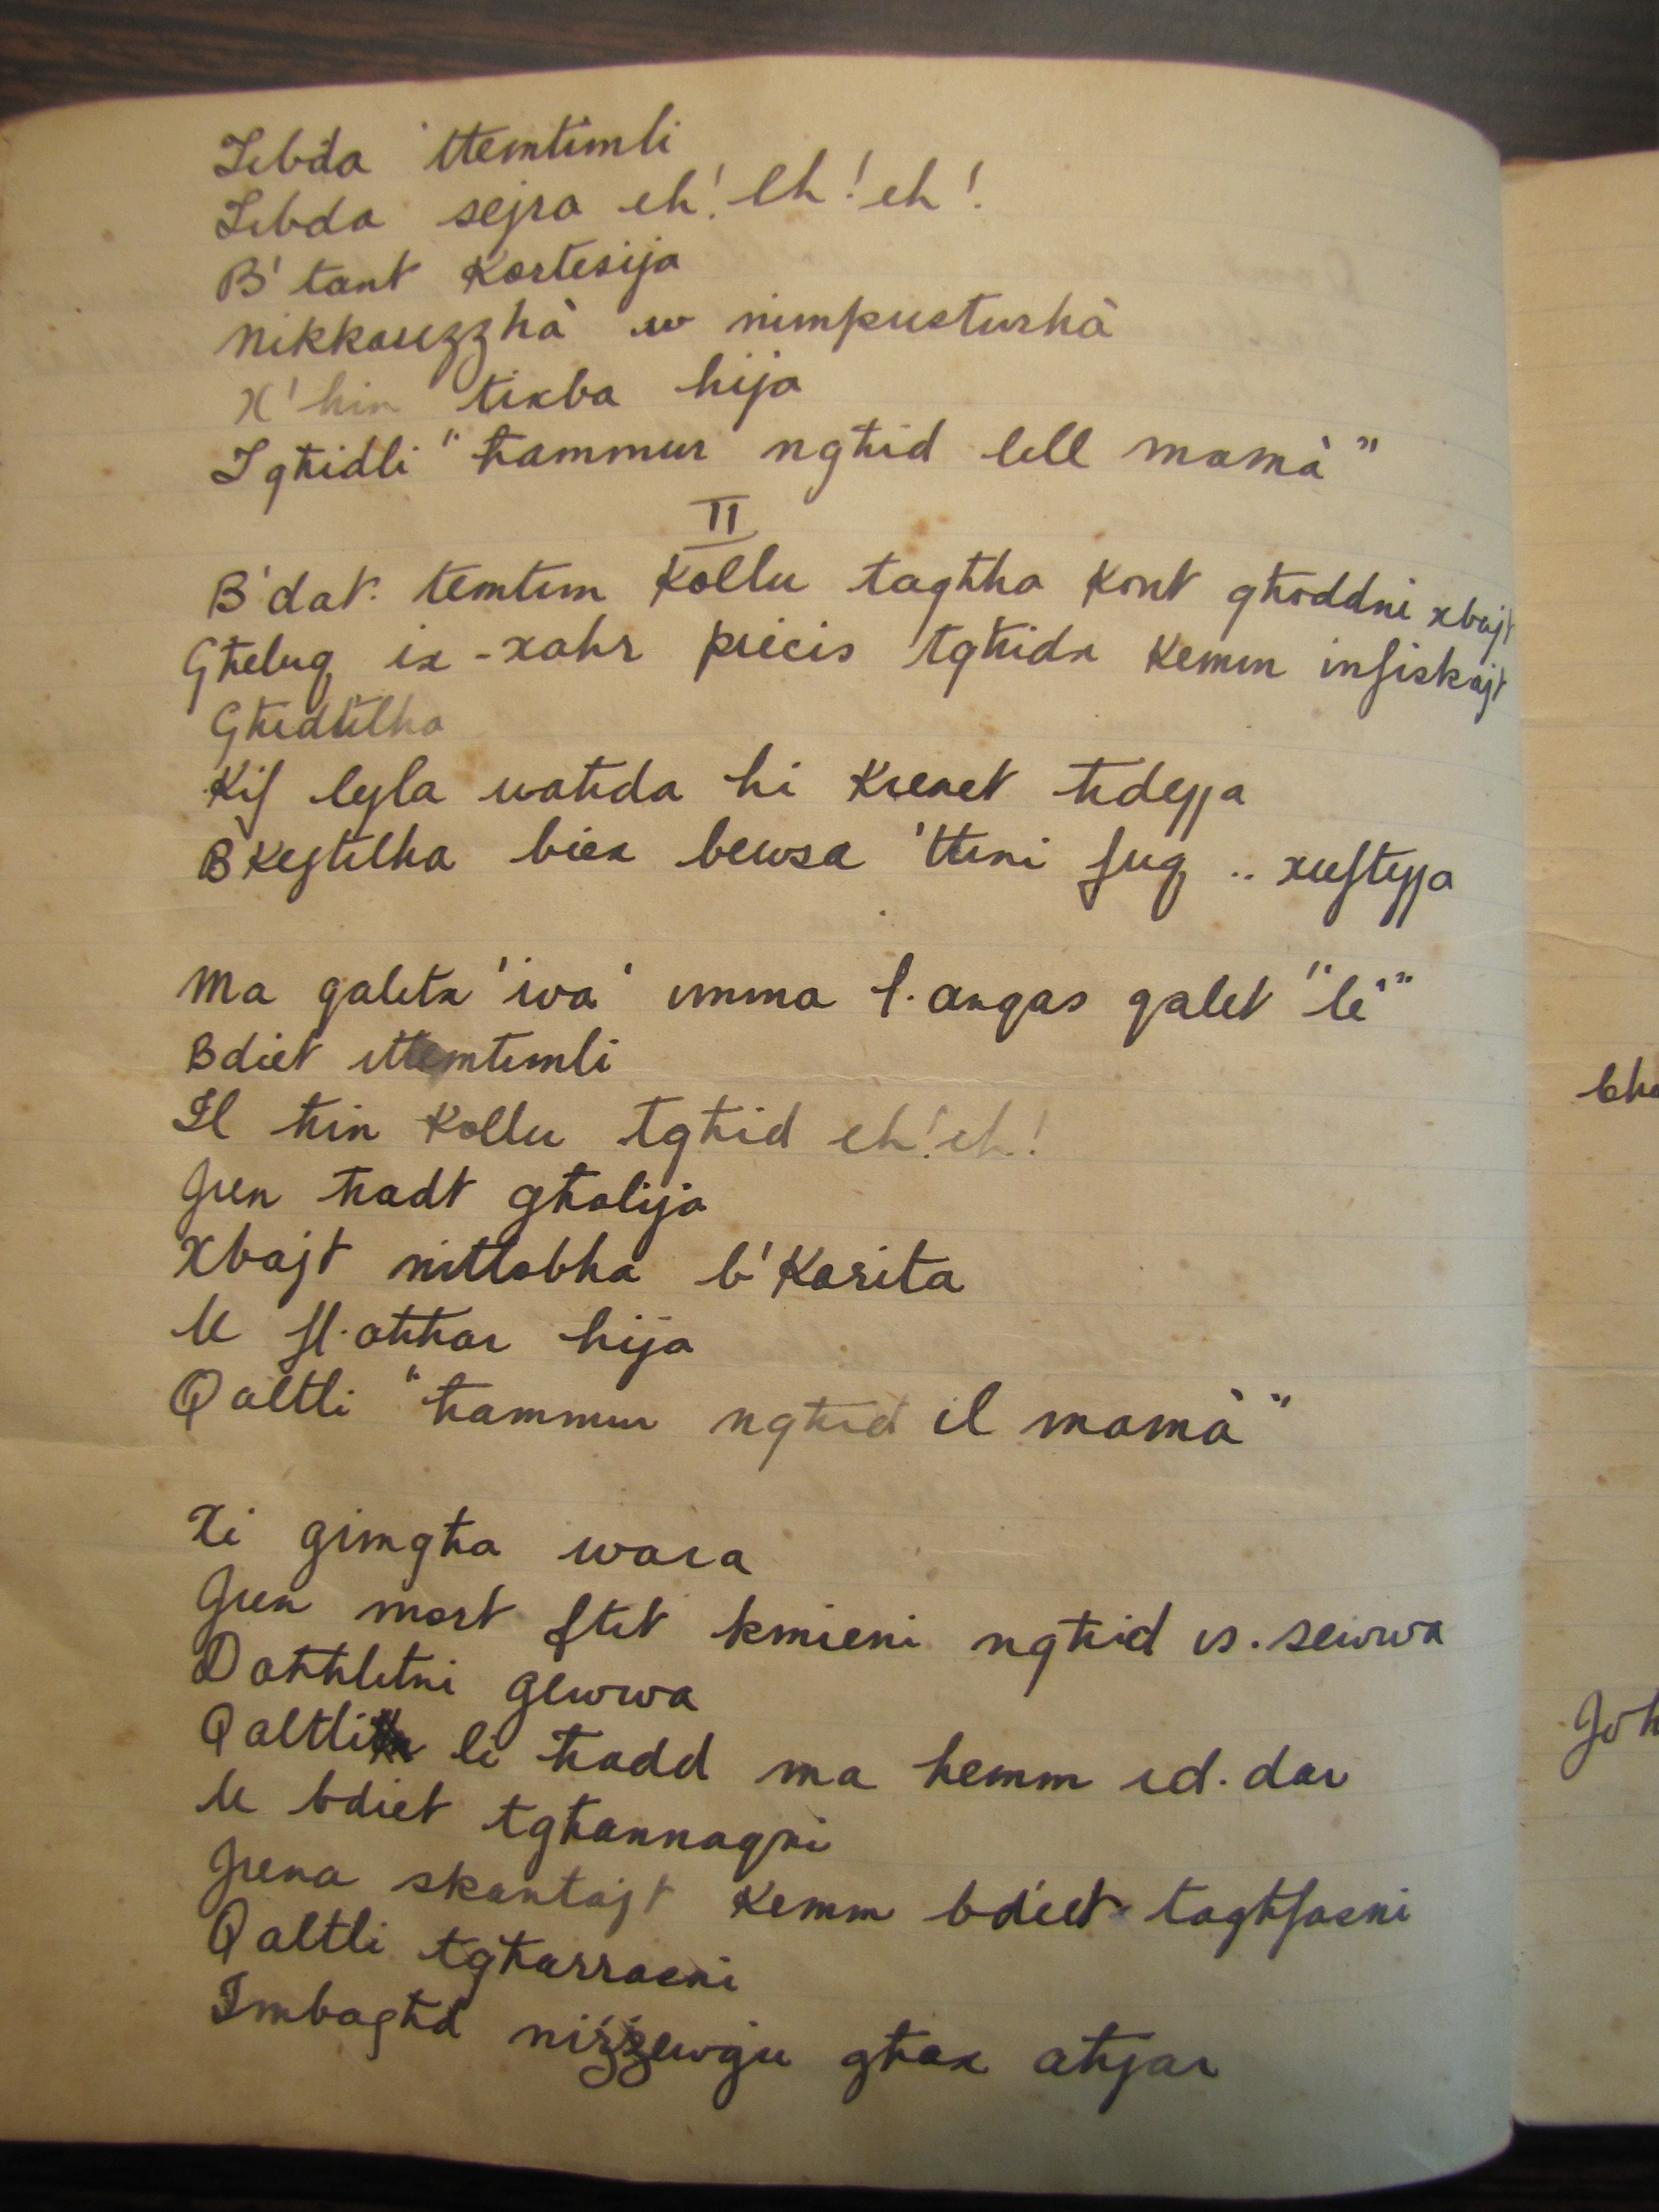 Tibda 'ttemtimli
Tibda sejra eh! eh! eh!
B'tant kortesija
nikkauzzhà w nimpusturhà
X'hin tixba hija
Tgħidli "ħammur ngħid lill mamà"
II
B'dat temtem kollu tagħha kont għoddni xbajt
Għeluq ix-xahr preċis tgħidx kemm infiskajt
Għidtilha
Kif lejla waħda hi kienet ħdejja
Bkejtilha biex bewsa 'ttini fuq .. xuftejja
Ma qaletx 'iva' imma l.anqas qalet "le"
Bdiet ittemtimli
Il ħin kollu tgħid eh! eh!
Jien ħadt għalija
Xbajt nitlobha b'Karita
U fl.aħħar hija
Qaltli "ħammur ngħid il mamà"
Xi gimgħa wara
Jien mort ftit kmieni ngħid is.sewwa
Daħħlitni gewwa
Qaltli li ħadd ma hemm id.dar
U bdiet tgħannaqni
Jiena skantajt kemm bdiet tagħfasni
Qaltli tgħarrasni
Imbagħd niżżewgu għax aħjar
Joħ